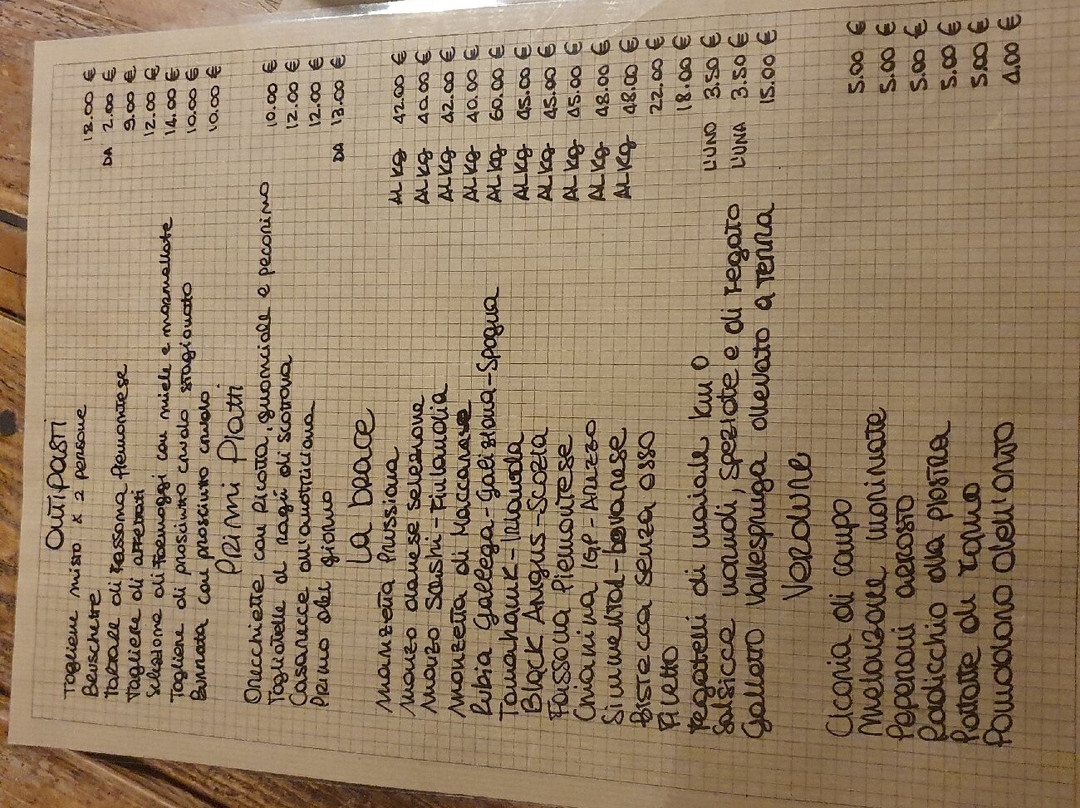 Antipasti
Tagliere misto x 2 persone 18.00 €
Bruschette DA 2.00 €
Tartare di Fassona Piemontese 9.00 €
Tagliere di affettati 12.00 €
Selezione di Formaggi con miele e marmellate 14.00 €
Tagliere di prosciutto crudo stagionato 10.00 €
Burrata con prosciutto crudo 10.00 €
Primi Piatti
Orecchiette con ricotta, guanciale e pecorino 10.00 €
Tagliatelle al ragù di scottona 12.00 €
Casarecce all'amatriciana 12.00 €
Primo del giorno DA 13.00 €
La brace
Manzetta Prussiana AL Kg 42.00 €
Manzo danese selezione AL Kg 40.00 €
Manzo Sashi-Finlandia AL Kg 42.00 €
Manzetta di Maccarese AL Kg 40.00 €
Rubia Gallega-Galiziana-Spagna AL Kg 60.00 €
Tomahawk-Irlanda AL Kg 45.00 €
Black Angus-Scozia AL Kg 45.00 €
Fassona Piemontese AL Kg 45.00 €
Chianina IGP-Abruzzo AL Kg 48.00 €
Simmental-bavarese AL Kg 48.00 €
Bistecca senza osso 22.00 €
Filetto 18.00 €
Fegatelli di maiale km 0 L'UNO 3.50 €
Salsicce normali, speziate e di fegato L'UNA 3.50 €
Galletto Vallespluga allevato a terra 15.00 €
Verdure
Cicoria di campo 5.00 €
Melanzane marinate 5.00 €
Peperoni arrosto 5.00 €
Radicchio alla piastra 5.00 €
Patate al forno 5.00 €
Pomodoro 4.00 €